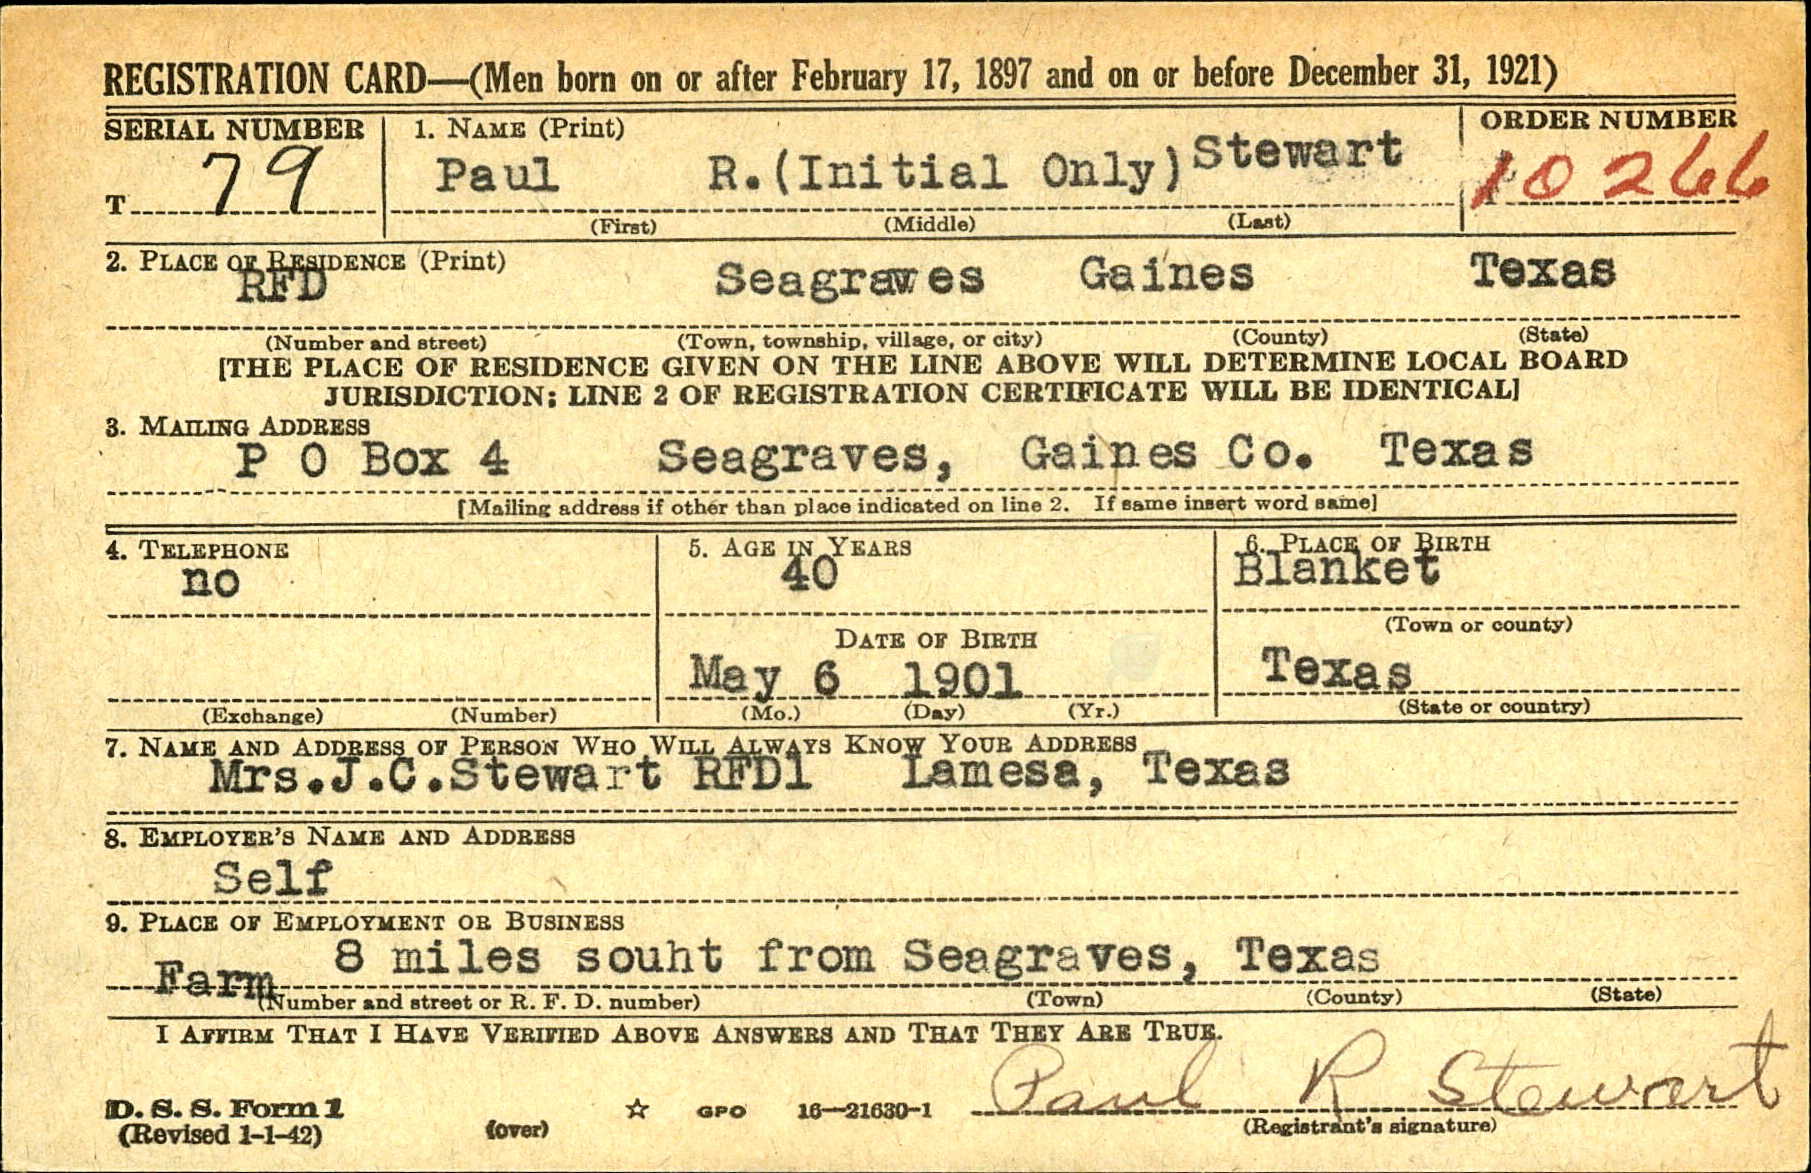 REGISTRATION CARD—(Men born on or after February 17, 1897 and on or before December 31, 1921)
SERIAL NUMBER
1. NAME (Print)
ORDER NUMBER
T 79
Paul R.(Initial Only) Stewart
10266
(First) (Middle) (Last)
2. PLACE OF RESIDENCE (Print)
RFD Seagraves Gaines Texas
(Number and street) (Town, township, village, or city) (County) (State)
[THE PLACE OF RESIDENCE GIVEN ON THE LINE ABOVE WILL DETERMINE LOCAL BOARD
JURISDICTION; LINE 2 OF REGISTRATION CERTIFICATE WILL BE IDENTICAL]
3. MAILING ADDRESS
P O Box 4 Seagraves, Gaines Co. Texas
[Mailing address if other than place indicated on line 2. If same insert word same]
4. TELEPHONE
no
(Exchange) (Number)
5. AGE IN YEARS
40
DATE OF BIRTH
May 6 1901
(Mo.) (Day) (Yr.)
6. PLACE OF BIRTH
Blanket
(Town or county)
Texas
(State or country)
7. NAME AND ADDRESS OF PERSON WHO WILL ALWAYS KNOW YOUR ADDRESS
Mrs.J.C.Stewart RFD1 Lamesa, Texas
8. EMPLOYER'S NAME AND ADDRESS
Self
9. PLACE OF EMPLOYMENT OR BUSINESS
Farm 8 miles souht from Seagraves, Texas
(Number and street or R. F. D. number) (Town) (County) (State)
I AFFIRM THAT I HAVE VERIFIED ABOVE ANSWERS AND THAT THEY ARE TRUE.
Paul R Stewart
D. S. S. Form 1
(Revised 1-1-42)
(over)
☆ GPO 16—21630-1
(Registrant's signature)